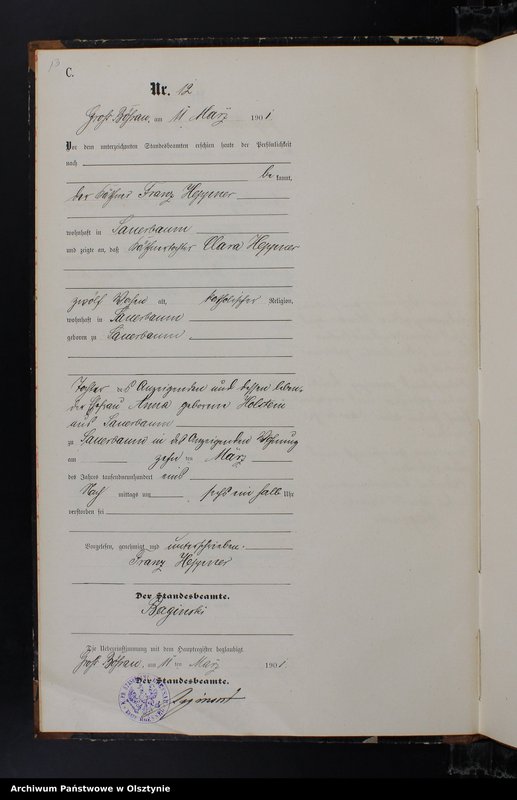 13
C.
Nr. 12
Groß Bößau, am 11 März 1901
Vor dem unterzeichneten Standesbeamten erschien heute der Persönlichkeit
nach
be kannt,
der Käthner Franz Heppner
wohnhaft in Sauerbaum
und zeigte an, daß Käthnertochter Clara Heppner
zwölf Wochen alt, katholischer Religion,
wohnhaft in Sauerbaum
geboren zu Sauerbaum
Tochter des Anzeigenden und dessen
Ehefrau Anna geborene Holstein
aus Sauerbaum
zu Sauerbaum in des Anzeigenden Wohnung
am zehn ten März
des Jahres tausendneunhundert eins
Nach mittags um sechs ein halb Uhr
verstorben sei
Vorgelesen, genehmigt und unterschrieben.
Franz Heppner
Der Standesbeamte.
Baginski
Die Uebereinstimmung mit dem Hauptregister beglaubigt
Groß Bößau, am 11 ten März 1901
Der Standesbeamte.
Archiwum Państwowe w Olsztynie